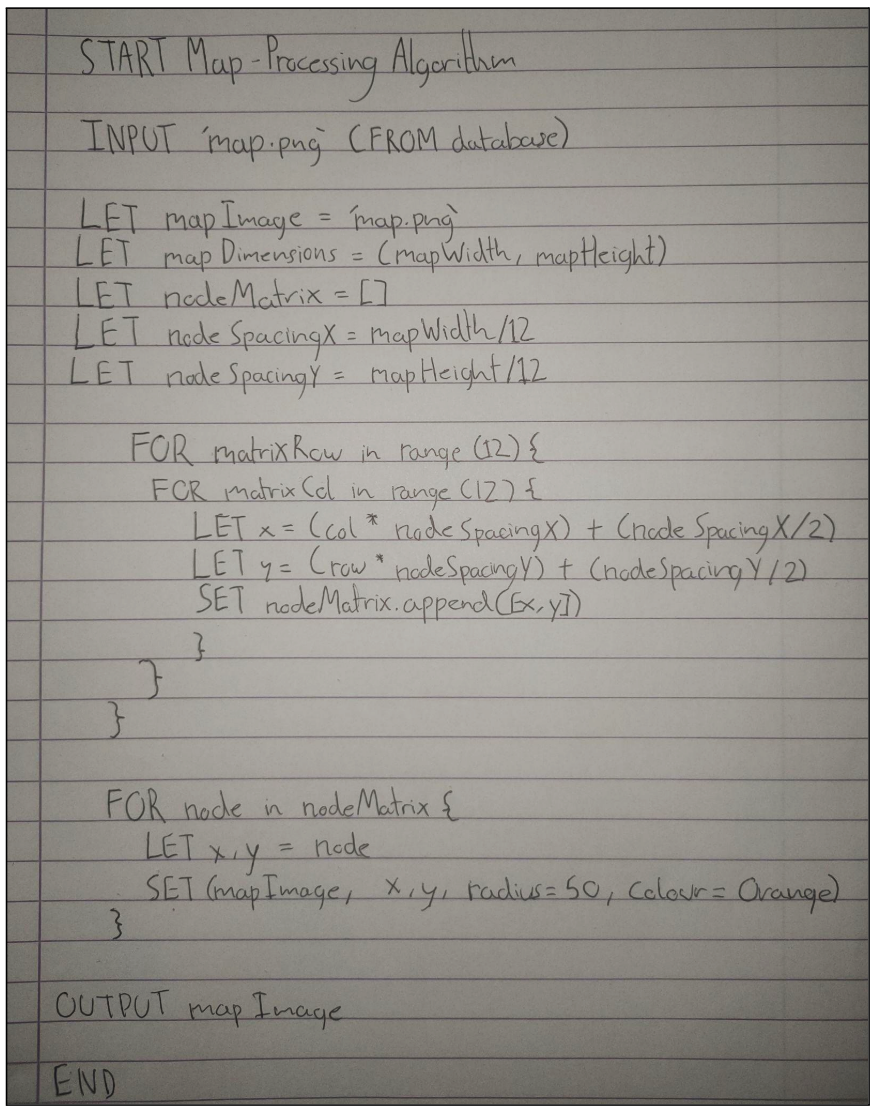 START Map-Processing Algorithm
INPUT 'map.png' (FROM database)
LET mapImage = 'map.png'
LET mapDimensions = (mapWidth, mapHeight)
LET nodeMatrix = []
LET nodeSpacingX = mapWidth/12
LET nodeSpacingY = mapHeight/12
FOR matrixRow in range (12) {
FOR matrixCol in range (12) {
LET x = (col * nodeSpacingX) + (nodeSpacingX/2)
LET y = (row * nodeSpacingY) + (nodeSpacingY/2)
SET nodeMatrix.append([x,y])
}
}
}
FOR node in nodeMatrix {
LET x,y = node
SET (mapImage, x,y, radius=50, Colour = Orange)
}
OUTPUT mapImage
END